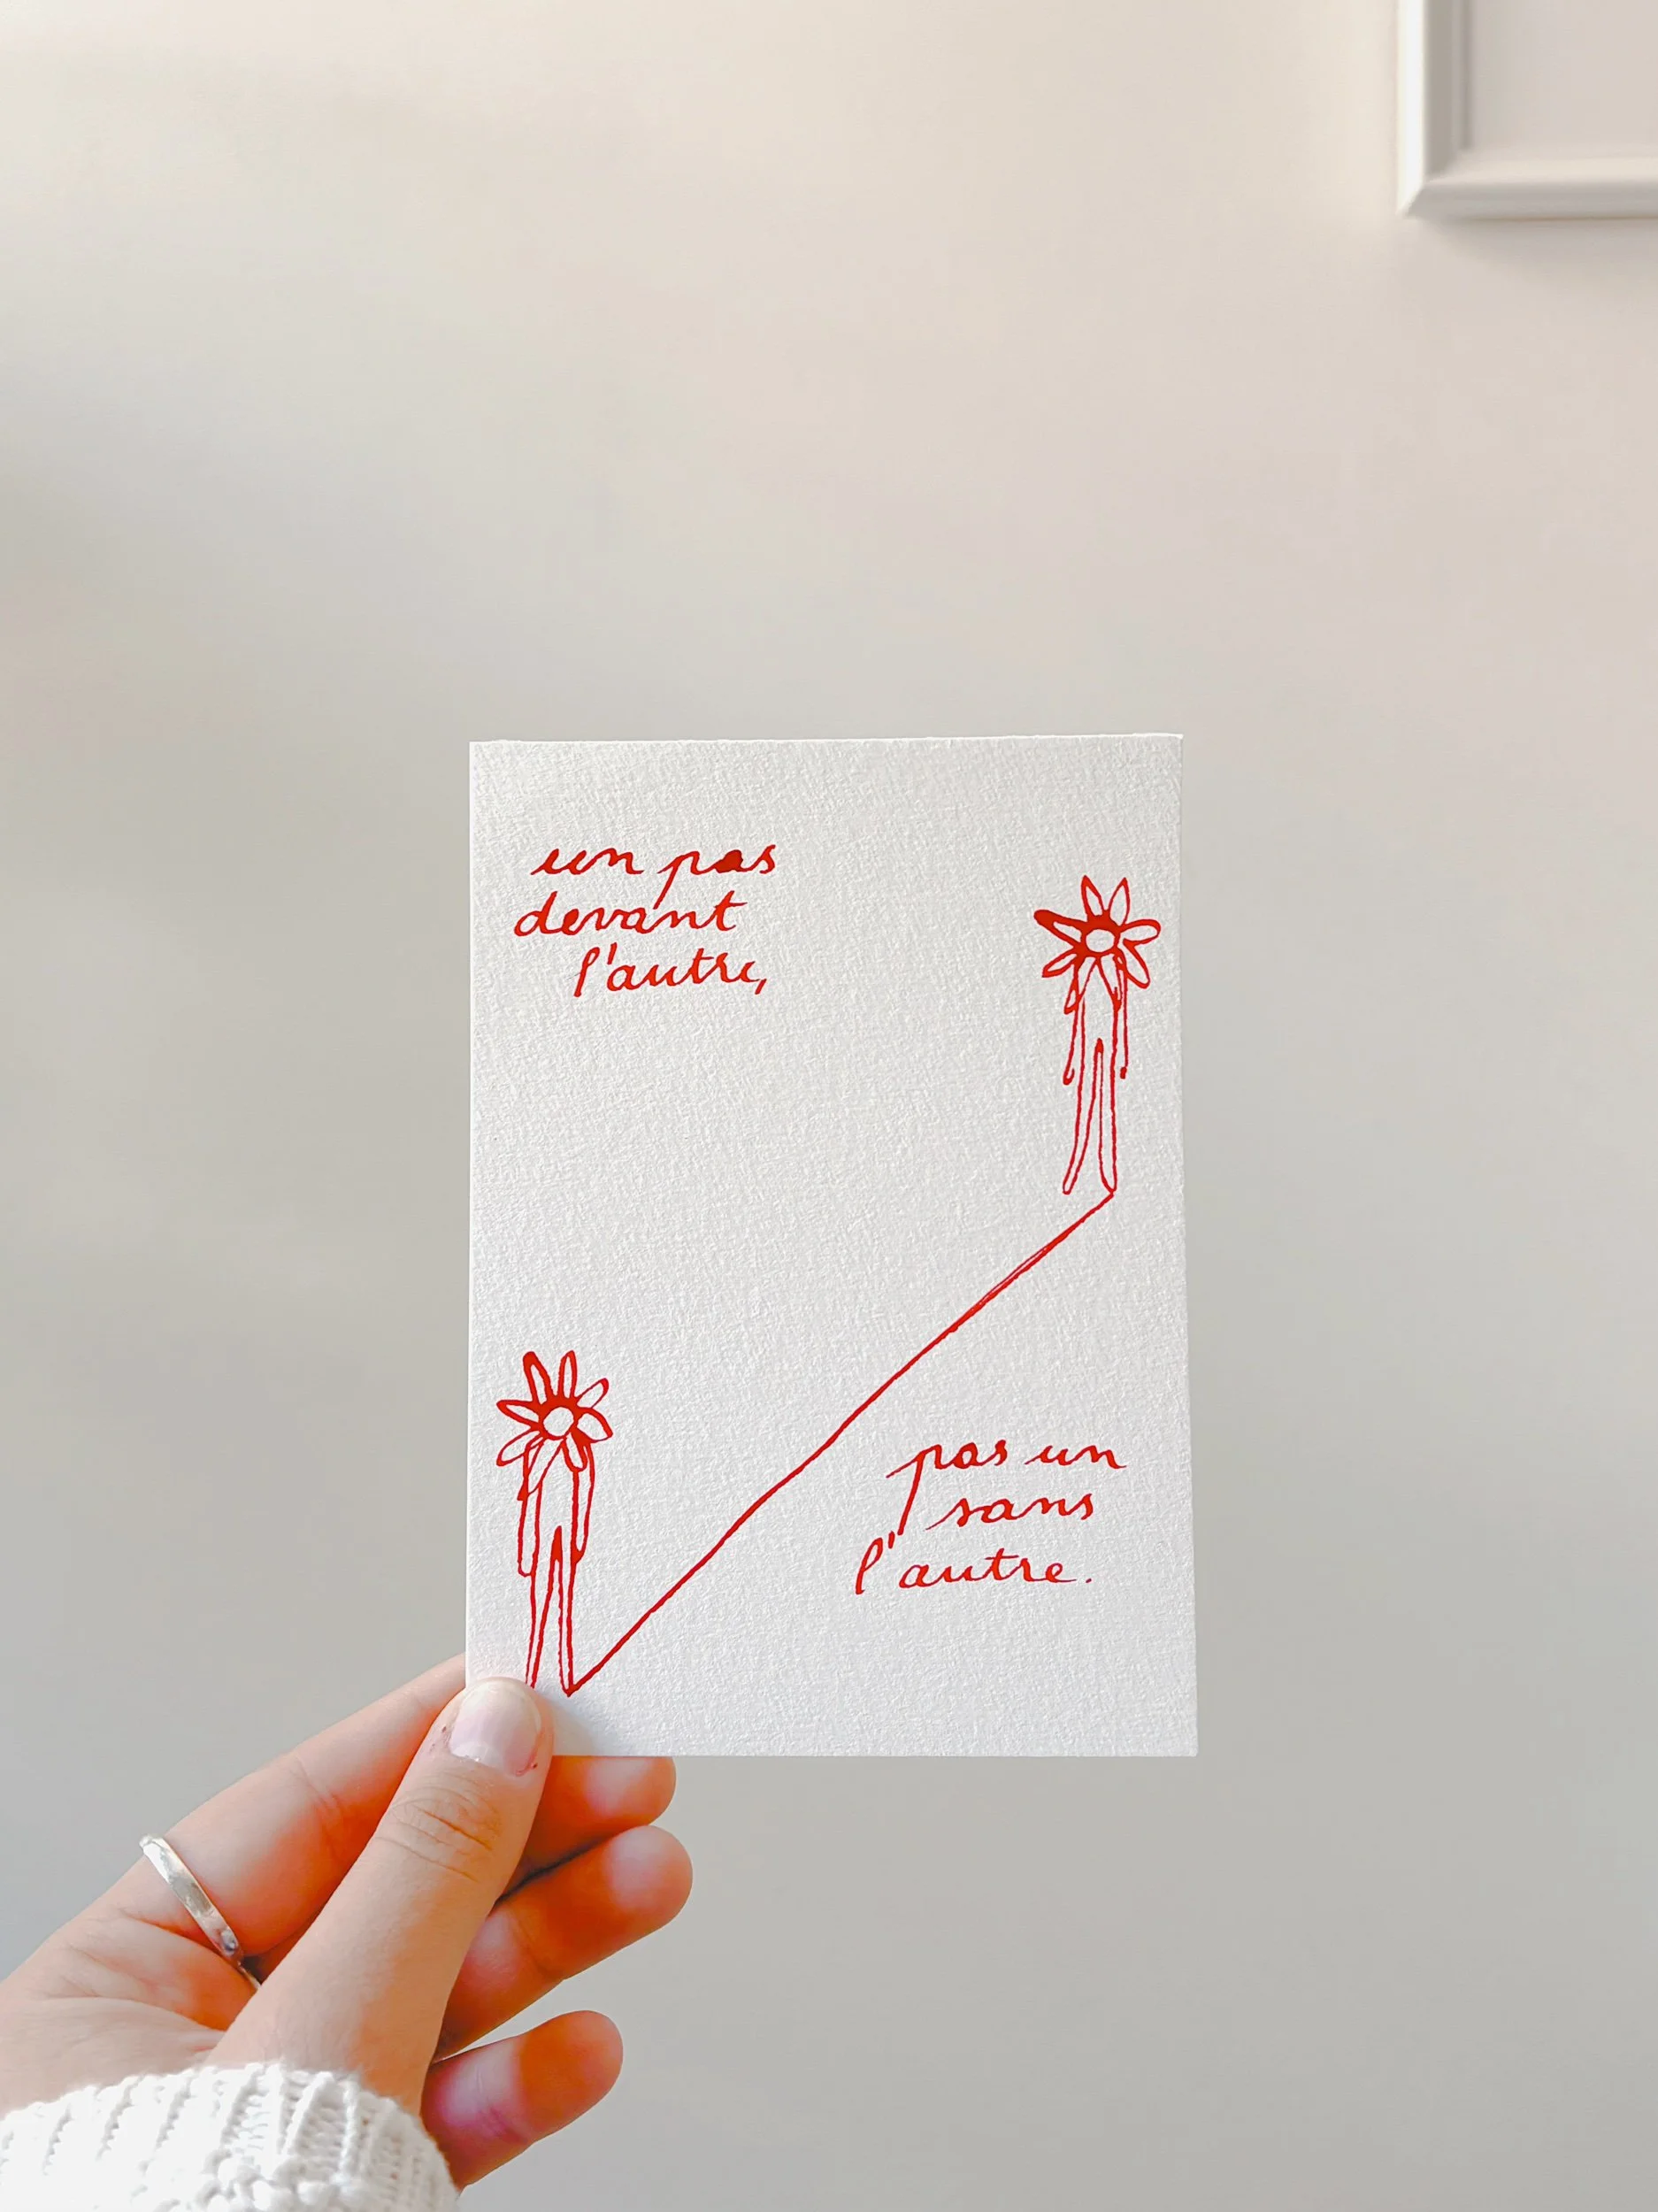 un pas
devant
l'autre,
pas un
sans
l'autre.